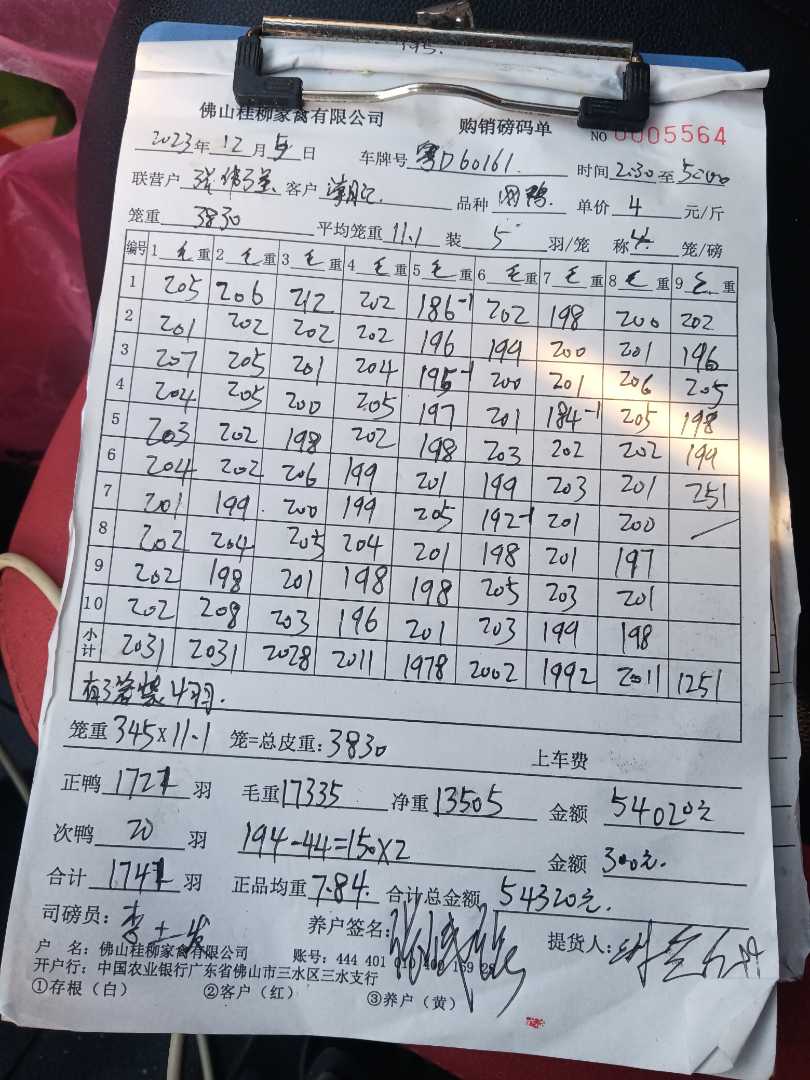 195.
佛山桂柳家禽有限公司 购销磅码单 NO 0005564
2023年12月5日 车牌号 粤D60161. 时间 2:30至5:00
联营户 张伟强 客户 品种 单价 4 元/斤
笼重 3830 平均笼重 11.1 装 5 羽/笼 称 4 笼/磅
编号 1 毛重 2 毛重 3 毛重 4 毛重 5 毛重 6 毛重 7 毛重 8 毛重 9 毛重
1 205 206 212 202 186-1 202 198 200 202
2 201 202 202 202 196 199 200 201 196
3 207 205 201 204 195-1 200 201 206 205
4 204 205 200 205 197 201 184-1 205 198
5 203 202 198 202 198 203 202 202 199
6 204 202 206 199 201 199 203 201 251
7 201 199 200 199 205 192-1 201 200 /
8 202 204 205 204 201 198 201 197
9 202 198 201 198 198 205 203 201
10 202 208 203 196 201 203 199 198
小计 2031 2031 2028 2011 1978 2002 1992 2011 1251
4羽.
笼重 345x11.1 笼=总皮重: 3830 上车费
正鸭 1721 羽 毛重 17335 净重 13505 金额 54020元
次鸭 20 羽 194-44=150x2 金额 300元.
合计 1741 羽 正品均重 7.84. 合计总金额 54320元.
司磅员: 养户签名: 提货人:
户 名: 佛山桂柳家禽有限公司 账号: 444 401
开户行: 中国农业银行广东省佛山市三水区三水支行
①存根（白） ②客户（红） ③养户（黄）